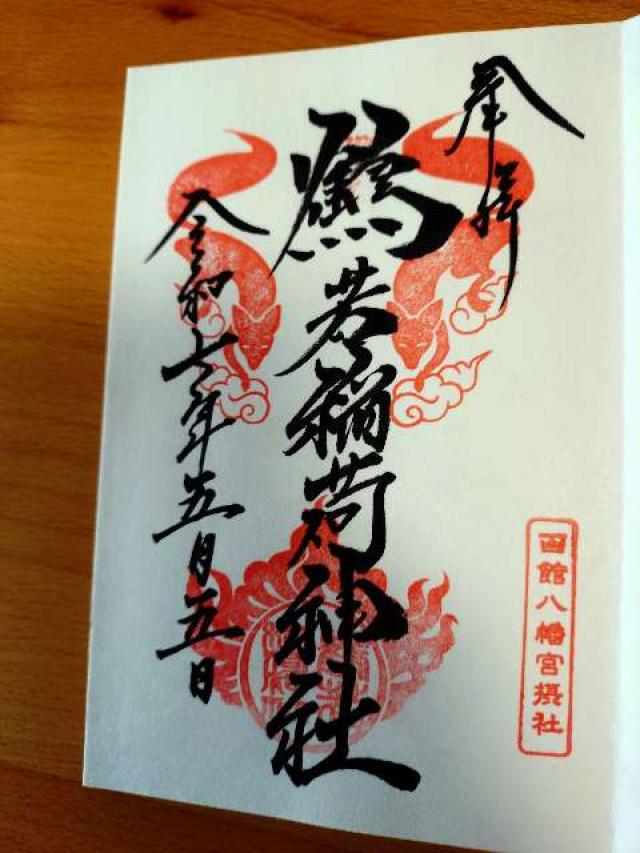 奉拝
鶴若稲荷神社
令和七年五月五日
函館八幡宮摂社